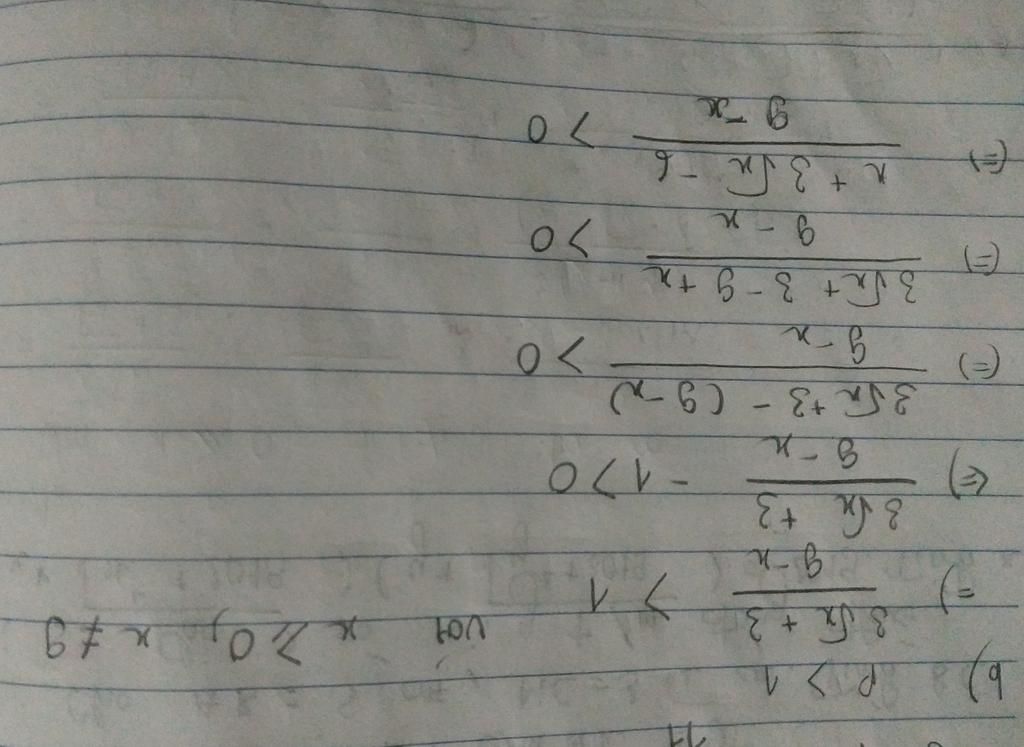 b) P > 1
=) \frac{3\sqrt{x} + 3}{9 - x} > 1 với x ≥ 0, x ≠ 9
(=) \frac{3\sqrt{x} + 3}{9 - x} - 1 > 0
(=) \frac{3\sqrt{x} + 3 - (9 - x)}{9 - x} > 0
(=) \frac{3\sqrt{x} + 3 - 9 + x}{9 - x} > 0
(=) \frac{x + 3\sqrt{x} - 6}{9 - x} > 0